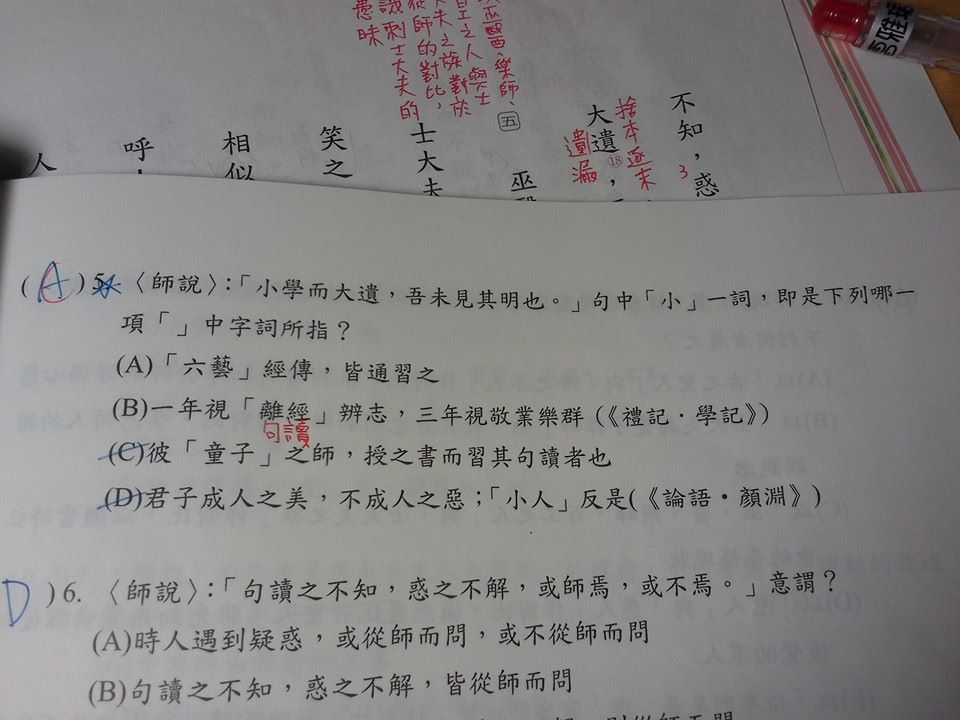 巫醫、樂師、
百工之人與士
大夫之族對於
從師的對比,
諷刺士大夫的
愚昧
不知,惑
3
捨本逐末
大遺,
18
遺漏
五
巫醫
士大夫
笑之
相似
呼
人
(A)5. 〈師說〉:「小學而大遺,吾未見其明也。」句中「小」一詞,即是下列哪一
項「」中字詞所指?
(A)「六藝」經傳,皆通習之
(B)一年視「離經」辨志,三年視敬業樂群(《禮記‧學記》)
句讀
(C)彼「童子」之師,授之書而習其句讀者也
(D)君子成人之美,不成人之惡;「小人」反是(《論語‧顏淵》)
D )6. 〈師說〉:「句讀之不知,惑之不解,或師焉,或不焉。」意謂?
(A)時人遇到疑惑,或從師而問,或不從師而問
(B)句讀之不知,惑之不解,皆從師而問